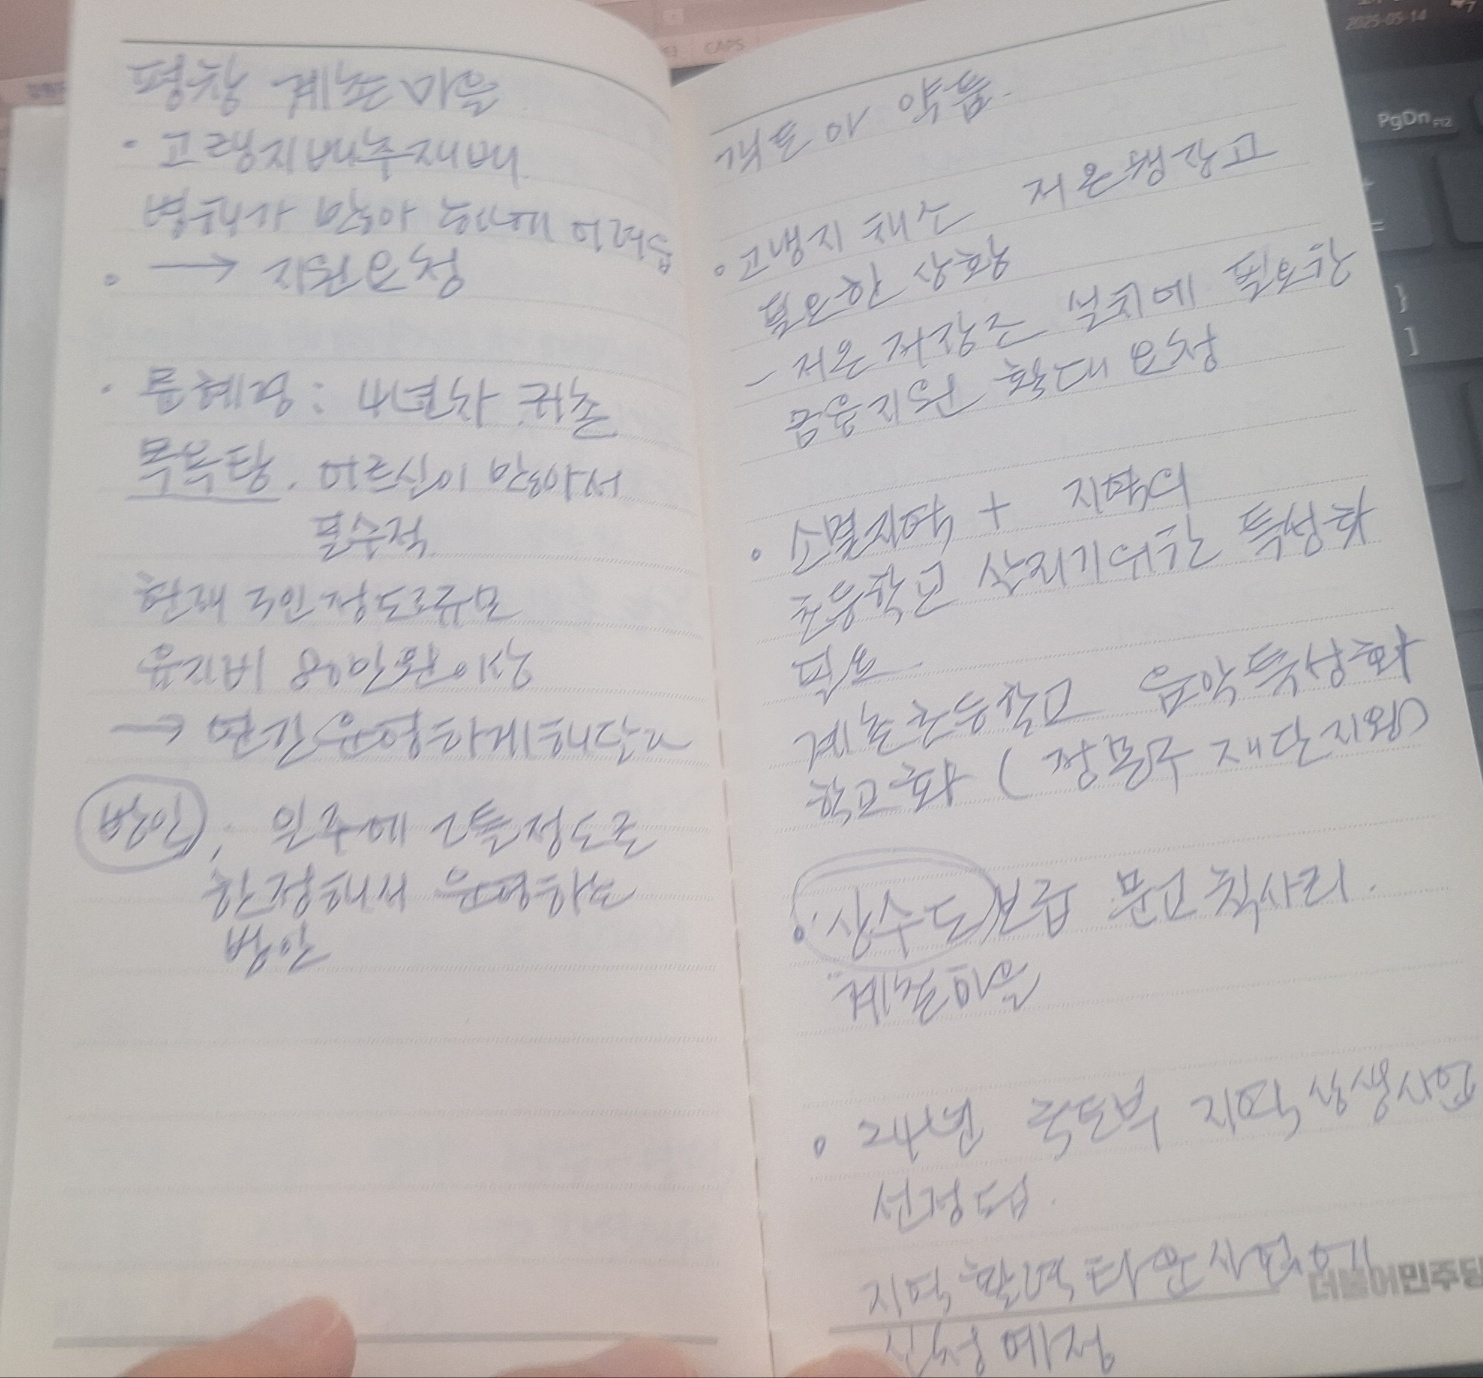 평창 계촌마을
• 고랭지배추재배
병해가 많아 어려움
• → 지원요청
• 4년차 귀촌
목욕탕. 어르신이 많아서
필수적
현재 3인 정도규모
유지비 80만원이상
→ 연간운영하게해달라
방안; 일주에 2틀정도로
한정해서 운영하는
방안
객토 약품.
• 고냉지 채소 저온냉장고
필요한 상황
- 저온저장고 설치에 필요한
금융지원 확대 요청
• 소멸지역 + 지역의
초등학교 살리기위한 특성화
필요
계촌초등학교 음악특성화
학교화 (정몽구 재단지원)
• 상수도보급
계촌마을
• 24년 국토부 지역상생사업
선정됨.
지역활력타운사업에
신청예정
더불어민주당
CAPS
2025-05-14
PgDn
F12
=
}
]